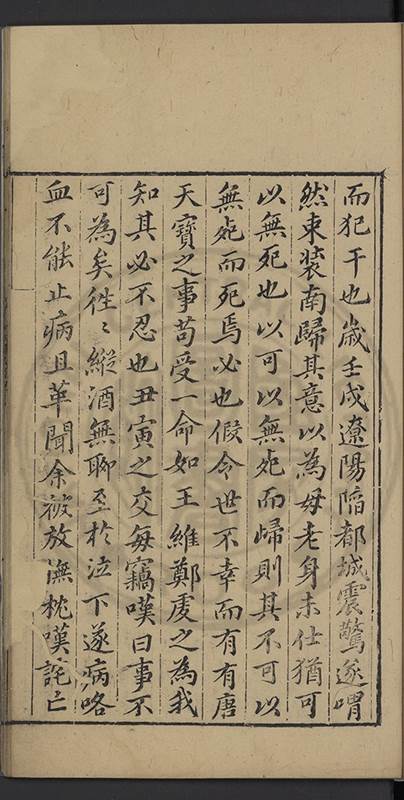 而犯干也歲壬戌遼陽陷都城震驚遂喟
然束裝南歸其意以為母老身未仕猶可
以無死也以可以無死而歸則其不可以
無死而死焉必也假令世不幸而有有唐
天寶之事苟受一命如王維鄭虔之為我
知其必不忍也丑寅之交每竊嘆曰事不
可為矣徃〻縱酒無聊至於泣下遂病咯
血不能止病且革聞余被放撫枕嘆詫亡